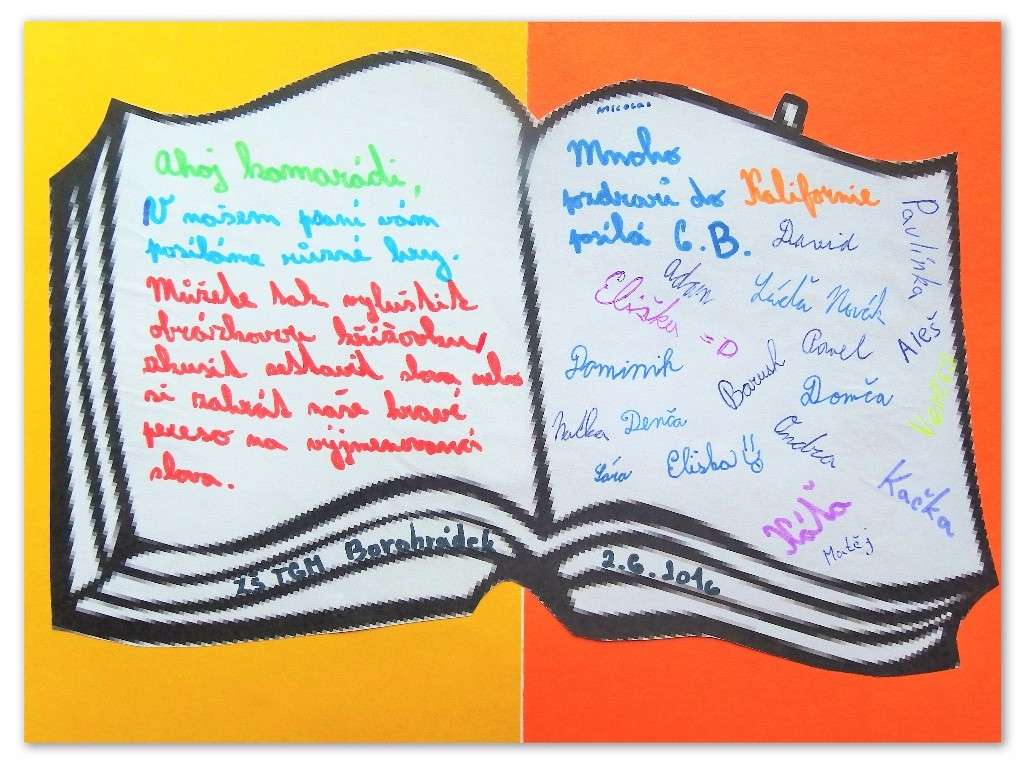 Ahoj kamarádi,
V našem psaní vám
posíláme různé hry.
Můžete tak vyluštit
obrázkovou křížovku,
zkusit sestavit slova nebo
si zahrát naše hravé
pexeso na vyjmenovaná
slova.
ZŠ TGM Borohrádek
Mnoho
pozdravů do Kalifornie
posílá 6.B.
David
Pavlínka
Adam
Eliška =D
Láďa Novák
Aleš
Pavel
Dominik
Barush
Domča
Denča
Ondra
Eliska
Kačka
Káťa
Matěj
2.6.2016